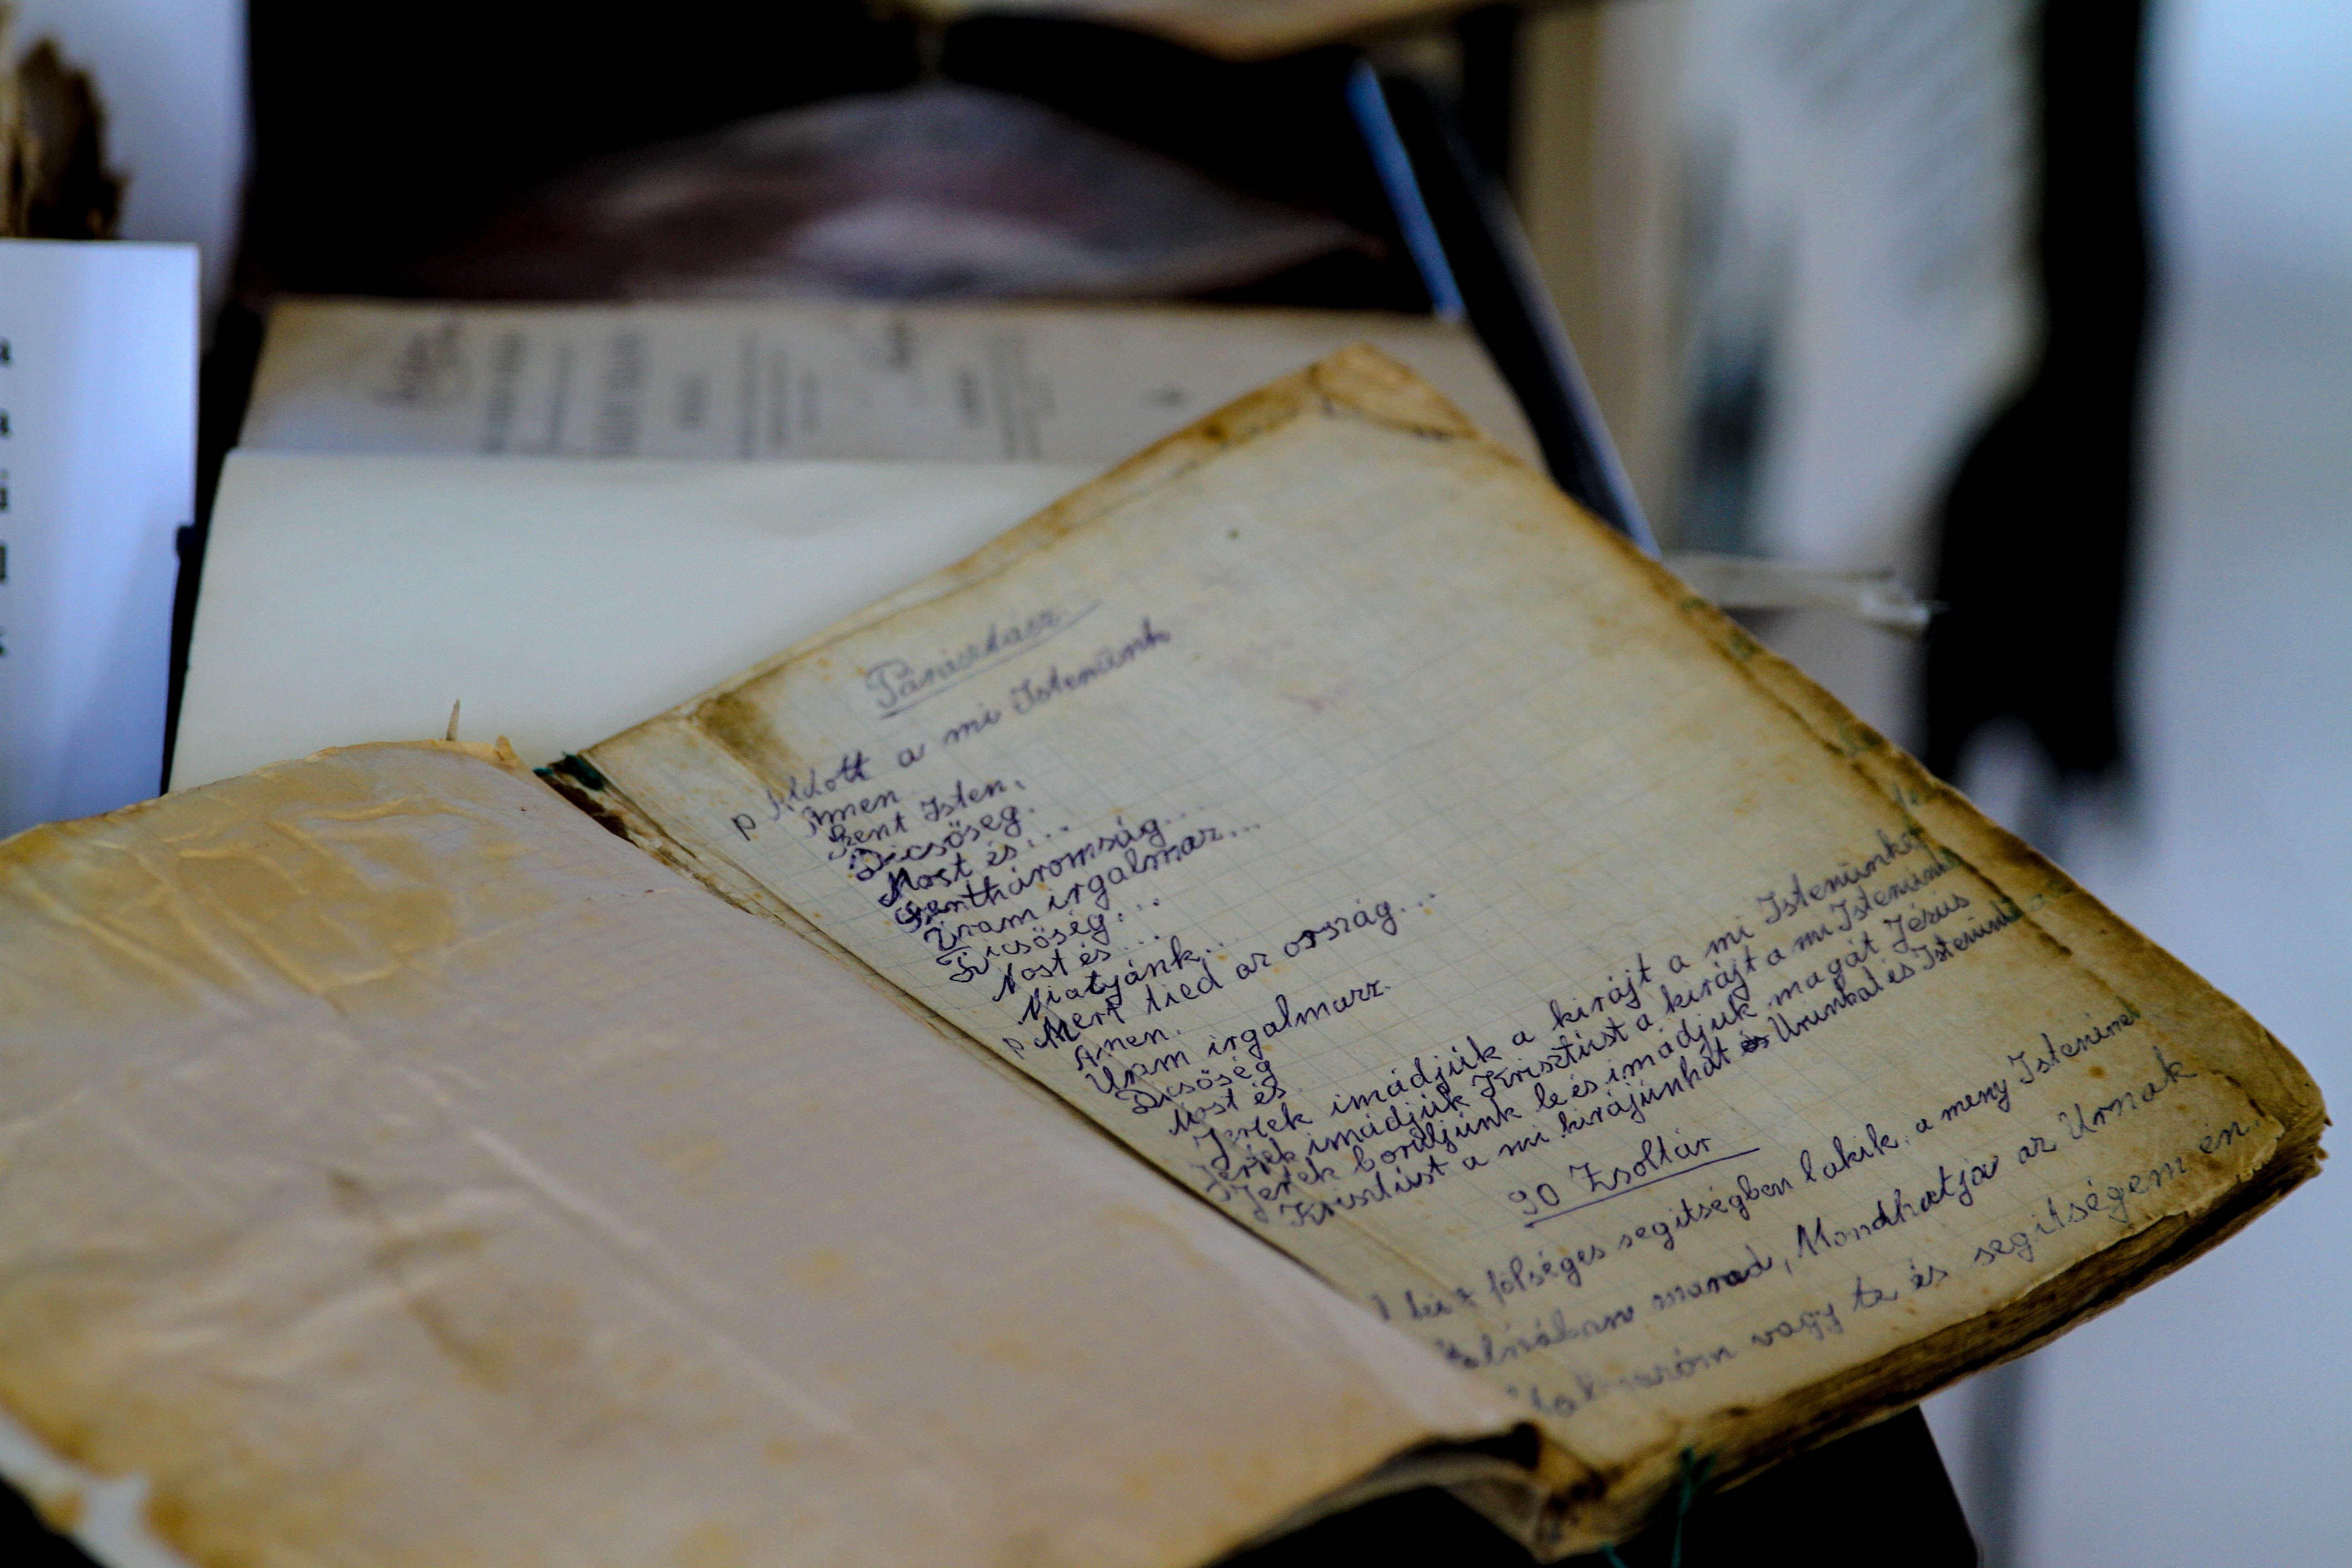 Pánásztász
p Áldott a mi Istenünk
Ámen.
Szent Isten.
Dicsőség.
Most és...
Szentháromság...
Uram irgalmaz...
Dicsőség...
Most és...
Miatjánk...
p Mert tied az ország...
Amen.
Uram irgalmazz.
Dicsőség
Most és
Jertek imádjúk a kirájt a mi Istenünket
Jertek imádjúk Krisztúst a kirájt a mi Istenünk
Jertek borúljúnk le és imádjuk magát Jézus
Krisztúst a mi kirájúnkat és Urunkat és Istenünk
90 Zsoltár
fölséges segitségben lakik, a meny Istenine
marad, Mondhatja az Urnak
vagy te és segitségem én.